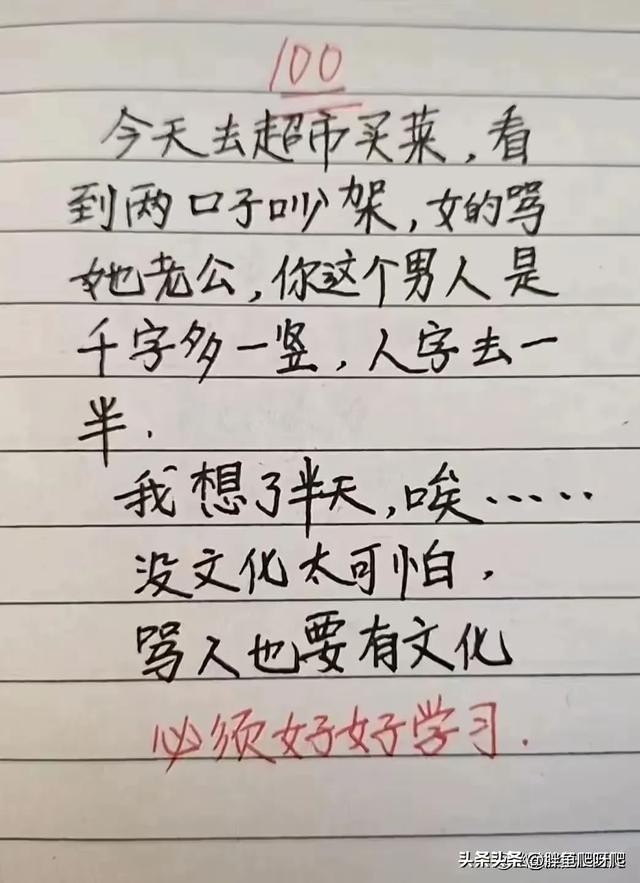 100
今天去超市买菜,看
到两口子吵架,女的骂
她老公,你这个男人是
千字多一竖,人字去一
半.
我想了半天,唉……
没文化太可怕.
骂人也要有文化
必须好好学习.
头条头条 @胖鱼爬呀爬